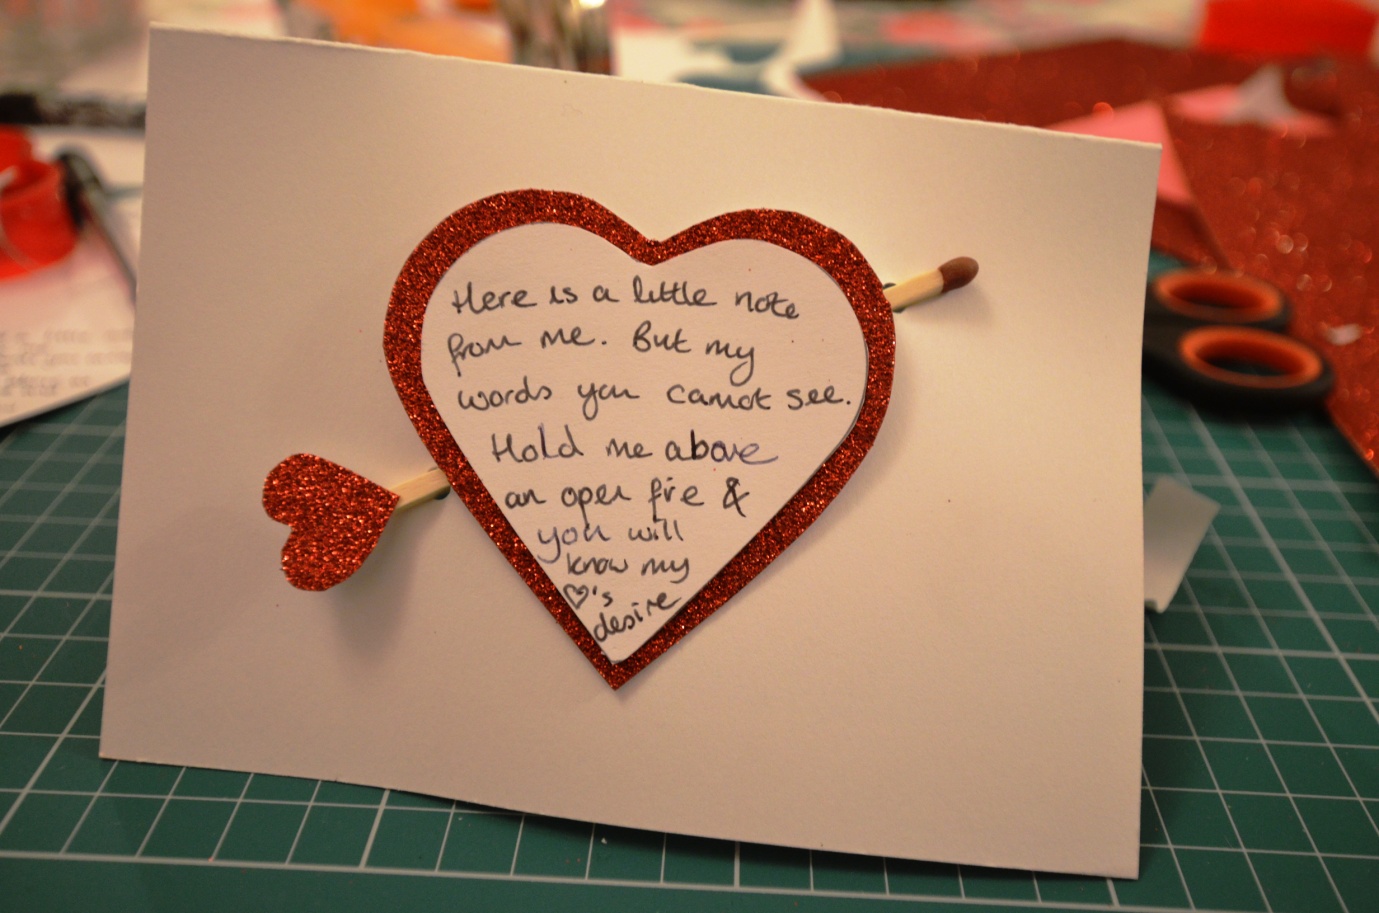 Here is a little note
from me. But my
words you cannot see.
Hold me above
an open fire &
you will
know my
♡'s
desire